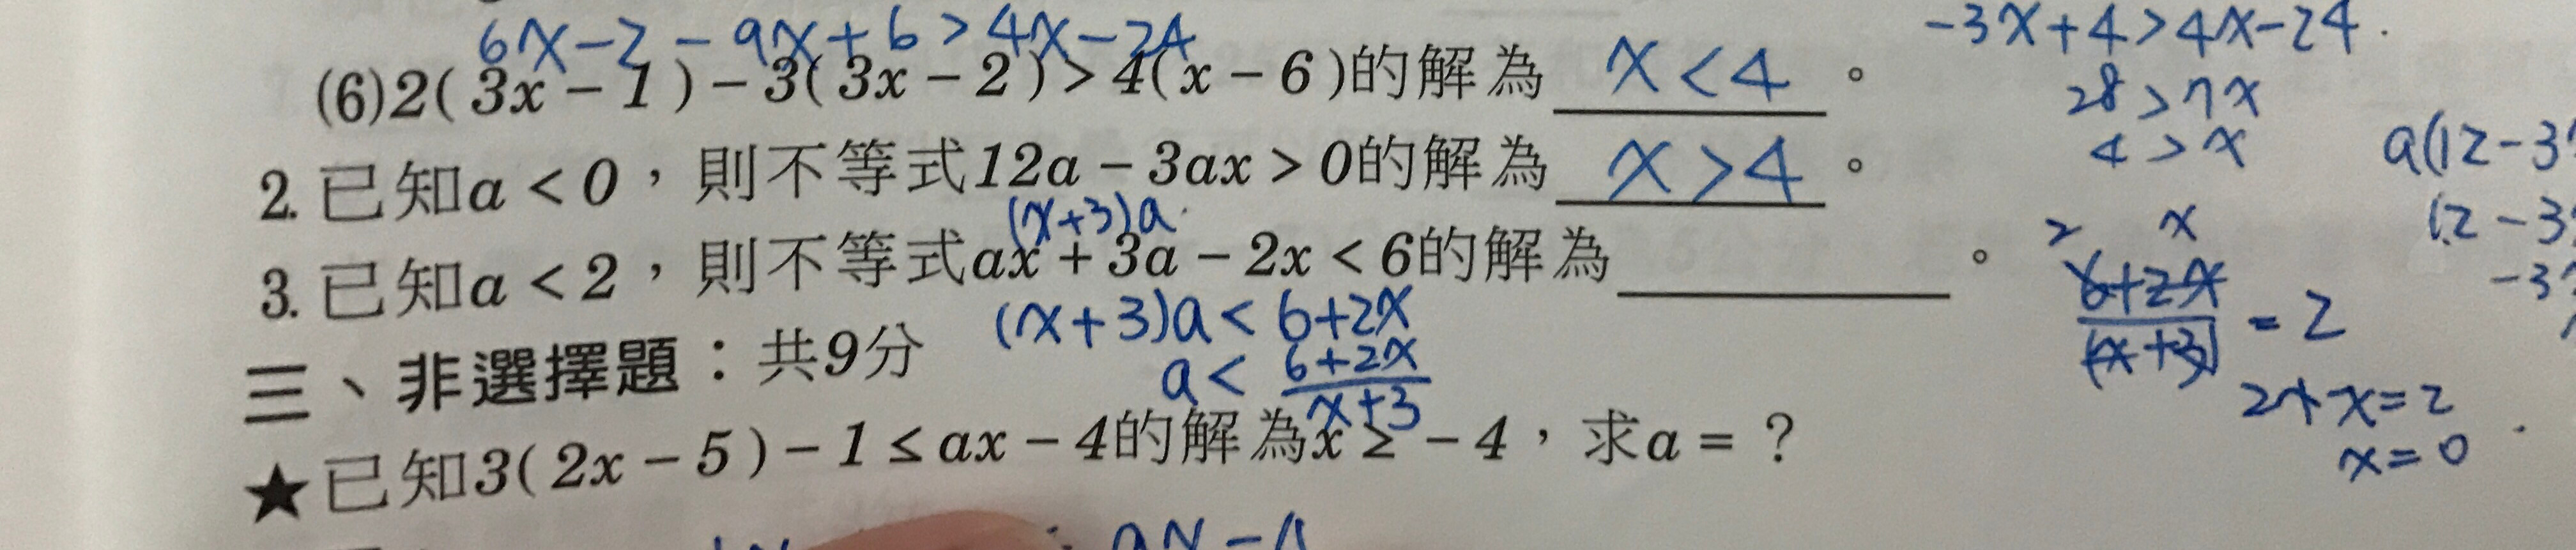 6x-2-9x+6>4x-24
-3x+4>4x-24.
(6)2(3x-1)-3(3x-2)>4(x-6)的解為 x<4 。
28>7x
4>x
a(12-3
2. 已知a<0，則不等式12a-3ax>0的解為 x>4 。
(x+3)a
12-3
2 x
3. 已知a<2，則不等式ax+3a-2x<6的解為 。
-3
(x+3)a<6+2x
6+2x/(x+3) =2
三、非選擇題：共9分
a< 6+2x/x+3
x=2
x=0
★已知3(2x-5)-1≤ax-4的解為x≥-4，求a=？
ax-4